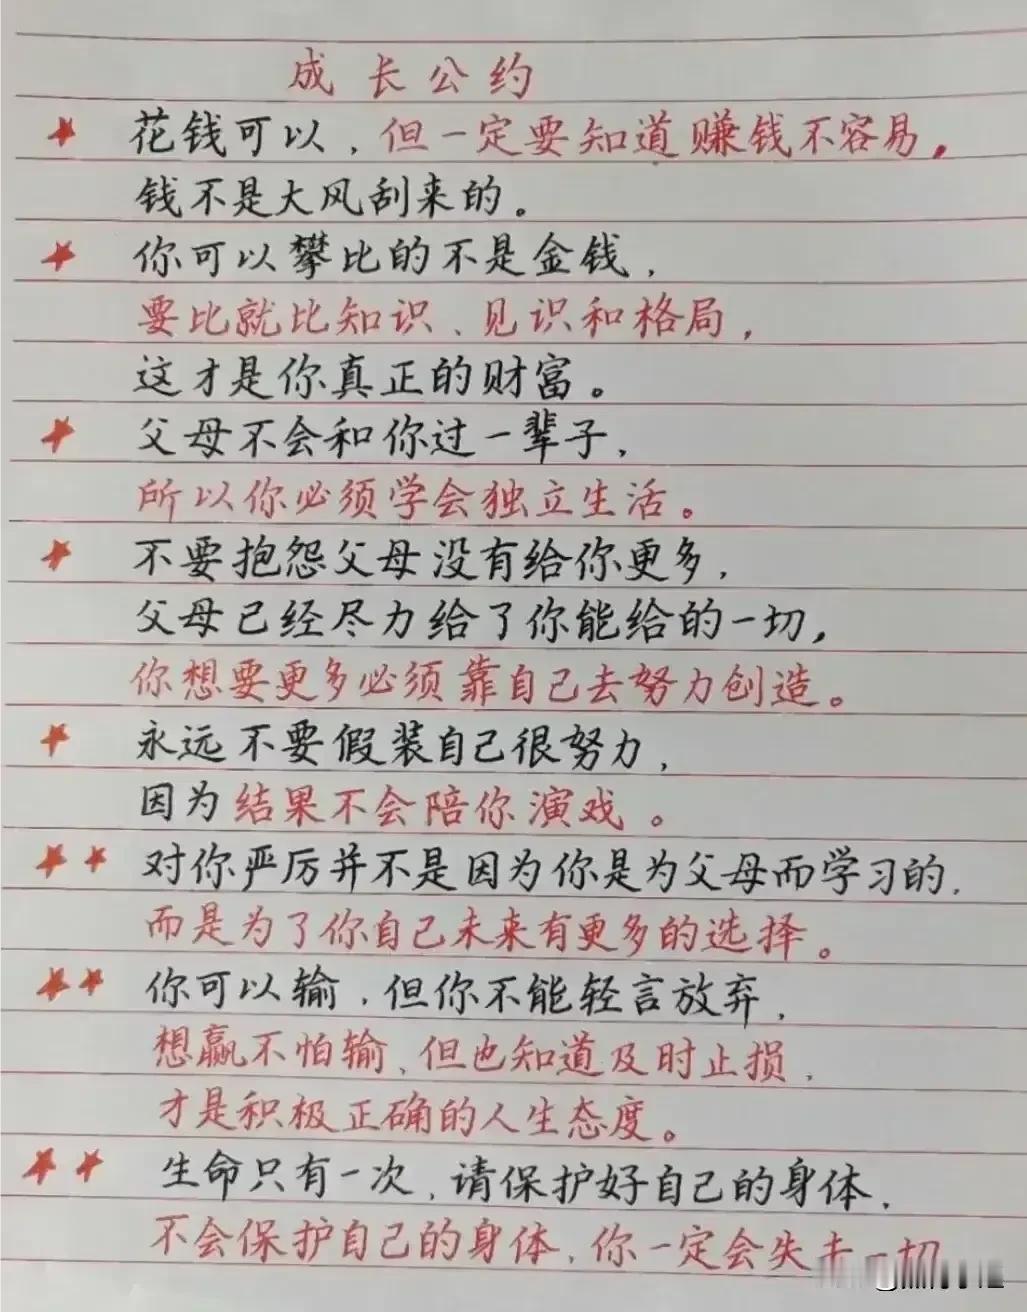 成长公约
★ 花钱可以，但一定要知道赚钱不容易，
钱不是大风刮来的。
★ 你可以攀比的不是金钱，
要比就比知识、见识和格局，
这才是你真正的财富。
★ 父母不会和你过一辈子，
所以你必须学会独立生活。
★ 不要抱怨父母没有给你更多，
父母已经尽力给了你能给的一切，
你想要更多必须靠自己去努力创造。
★ 永远不要假装自己很努力，
因为结果不会陪你演戏。
★★ 对你严厉并不是因为你是为父母而学习的，
而是为了你自己未来有更多的选择。
★★ 你可以输，但你不能轻言放弃，
想赢不怕输、但也知道及时止损，
才是积极正确的人生态度。
★★ 生命只有一次，请保护好自己的身体，
不会保护自己的身体，你一定会失去一切